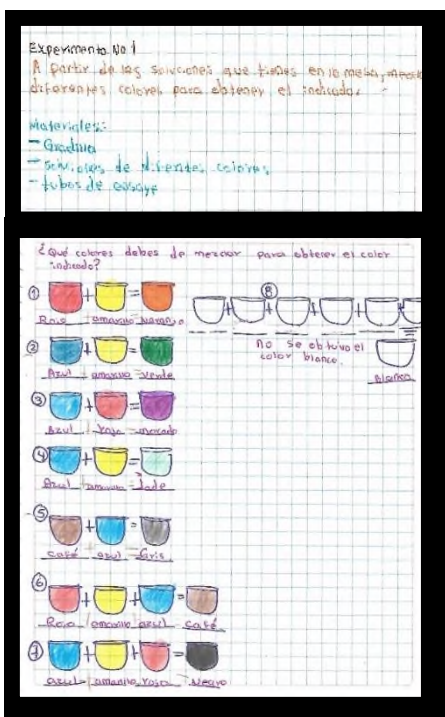 Experimento No 1
A partir de las soluciones que tienes en la mesa, mezcla
diferentes colores para obtener el indicado.
Materiales:
- Gradilla
- soluciones de diferentes colores
- tubos de ensaye
¿Qué colores debes de mezclar para obtener el color
indicado?
① + =
Rojo amarillo naranja
② + =
Azul amarillo = verde
③ + =
Azul rojo = morado
④ + =
Azul + amarillo = Jade
⑤ + =
café azul = Gris
⑥ + + =
Rojo amarillo azul = café
⑦ + + =
azul + amarillo rojo = Negro
⑧
+ + + + +
no se obtuvo el
color blanco.
Blanco